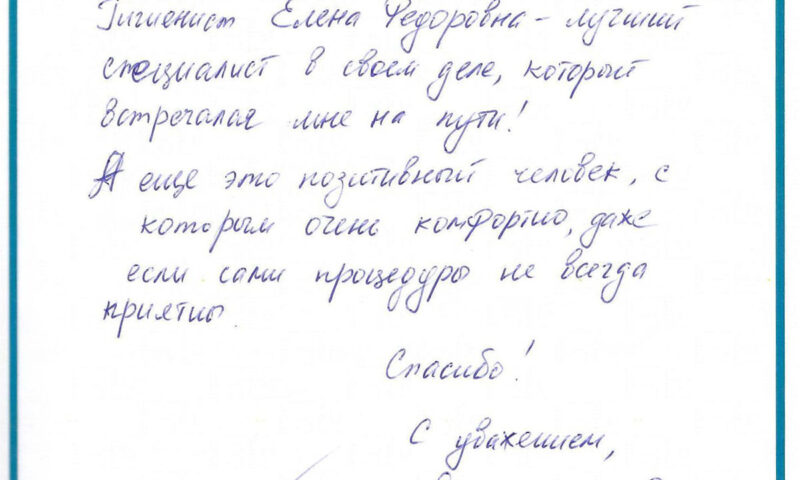 Гигиенист Елена Федоровна - лучший
специалист в своем деле, который
встречался мне на пути!
А еще это позитивный человек, с
которым очень комфортно, даже
если сами процедуры не всегда
приятны
Спасибо!
С уважением,